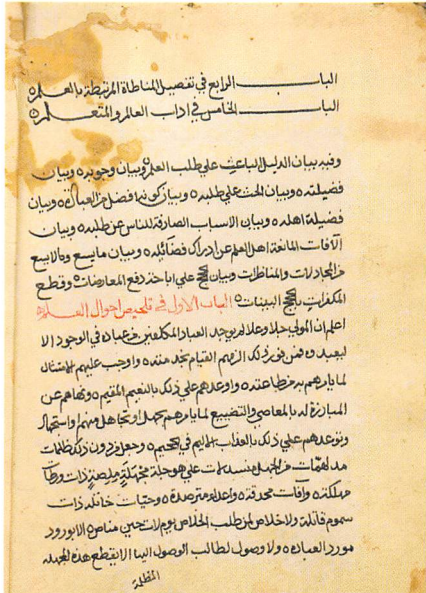 الباب الرابع في تفصيل المناطاة المرتبطة بالعلم
الباب الخامس في اداب العالم والمتعلم
وفيه بيان الدليل الباعث علي طلب العلم وبيان وجوبه وبيان
فضيلته وبيان الحث علي طلبه وبيان كونه افضل من العبادة وبيان
فضيلة اهله وبيان الاسباب الصارفة للناس عن طلبه وبيان
الآفات المانعة اهل العلم عن ادراك فضائله وبيان مايسع ومالايسع
من المجادلات والمناظرات وبيان حجج علي اباحة دفع المعارضات وقطع
المكفرات بحجج البينات الباب الاول في تلخيص احوال العلم
اعلم ان المولي جل وعلا لم يوجد العباد المكلفين من عباده في الوجود الا
ليعبدوه فمن ذلك الزمهم القيام بخدمته واوجب عليهم الامتثال
لما يامرهم به من طاعته واوعدهم علي ذلك بالنعيم المقيم ونهاهم عن
المبارزة له بالمعاصي والتضييع لما يامرهم به جهلا وتجاهل منهم واستجهال
وتوعدهم علي ذلك بالعذاب الاليم في الجحيم وجعل من دون ذلك ظلمات
مدلهمات من الجهل منسدلات علي هوجلة مجهلة ملصة ذات ورطات
مهلكة وآفات محدقة واعداء مترصدة وحيات خاتلة ذات
سموم قاتلة ولاخلاص لمن طلب الخلاص يوم لات حين مناص الا بورود
مورد العبادة ولا وصول لطالب الوصول اليها الا بقطع هذه الجهلة
المظلمة